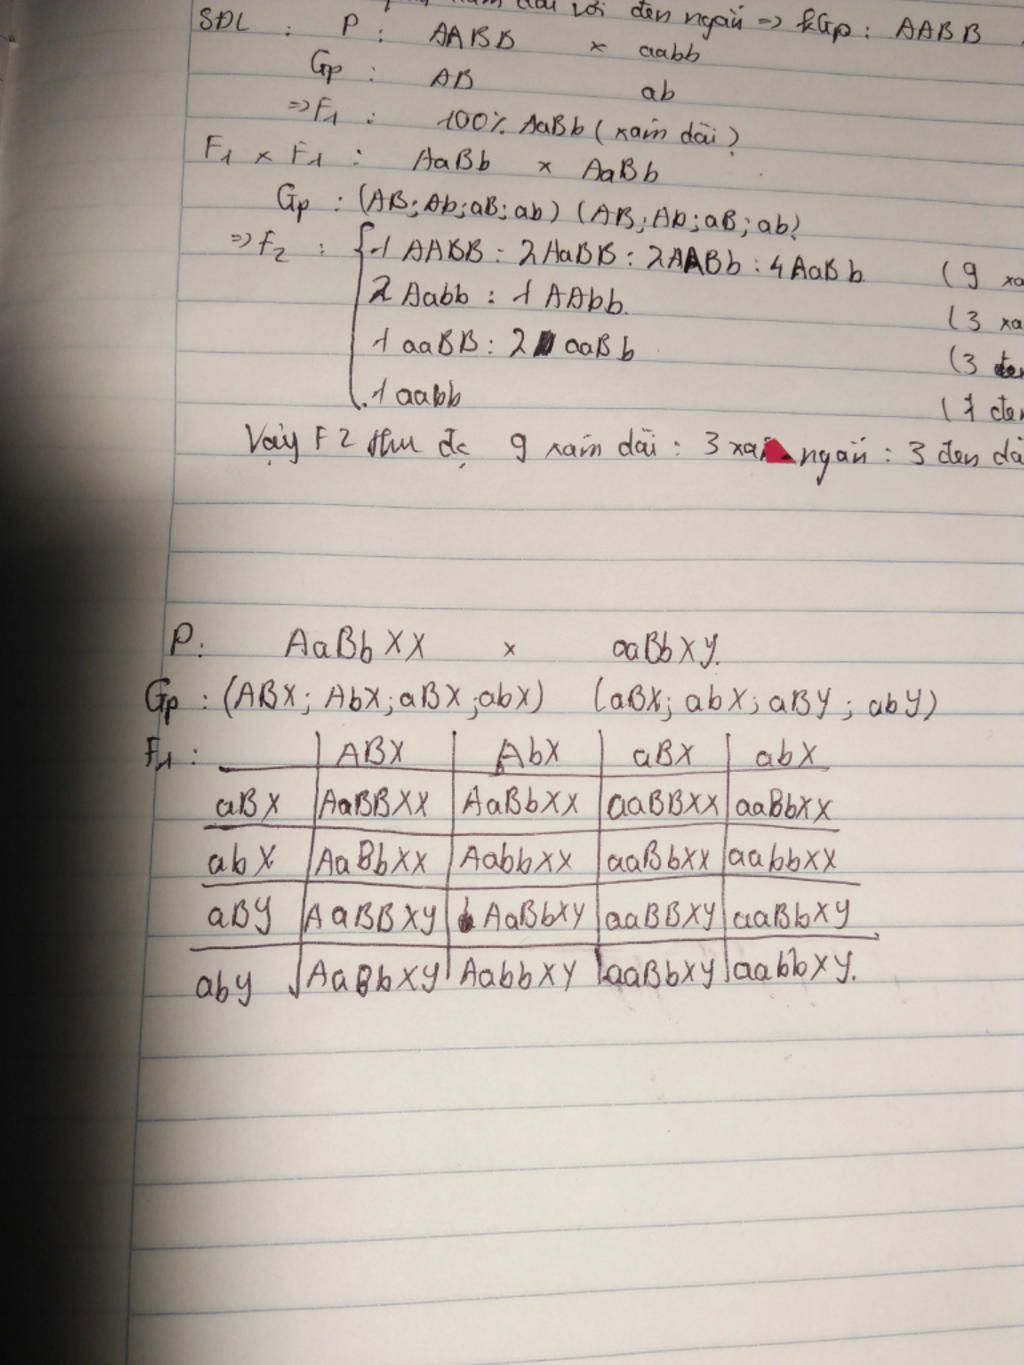 dài với đen ngắn => kGp: AABB
SĐL : P : AABB × aabb
Gp : AB ab
=> F1 : 100% AaBb (xám dài)
F1 × F1 : AaBb × AaBb
Gp : (AB; Ab; aB; ab) (AB; Ab; aB; ab)
=> F2 : 1 AABB : 2AaBB : 2AABb : 4AaBb (9 xá
2 Aabb : 1 AAbb. (3 xá
1 aaBB : 2 aaBb (3 đen
1 aabb (1 đen
Vậy F2 thu đc 9 xám dài : 3 xám ngắn : 3 đen dà
P: AaBb XX × aaBb XY.
Gp : (ABX; AbX; aBX; abX) (aBX; abX; aBY; abY)
F1 : ABX AbX aBX abX
aBX AaBBXX AaBbXX aaBBXX aaBbXX
abX AaBbXX AabbXX aaBbXX aabbXX
aBY AaBBXY AaBbXY aaBBXY aaBbXY
abY AaBbXY AabbXY aaBbXY aabbXY.